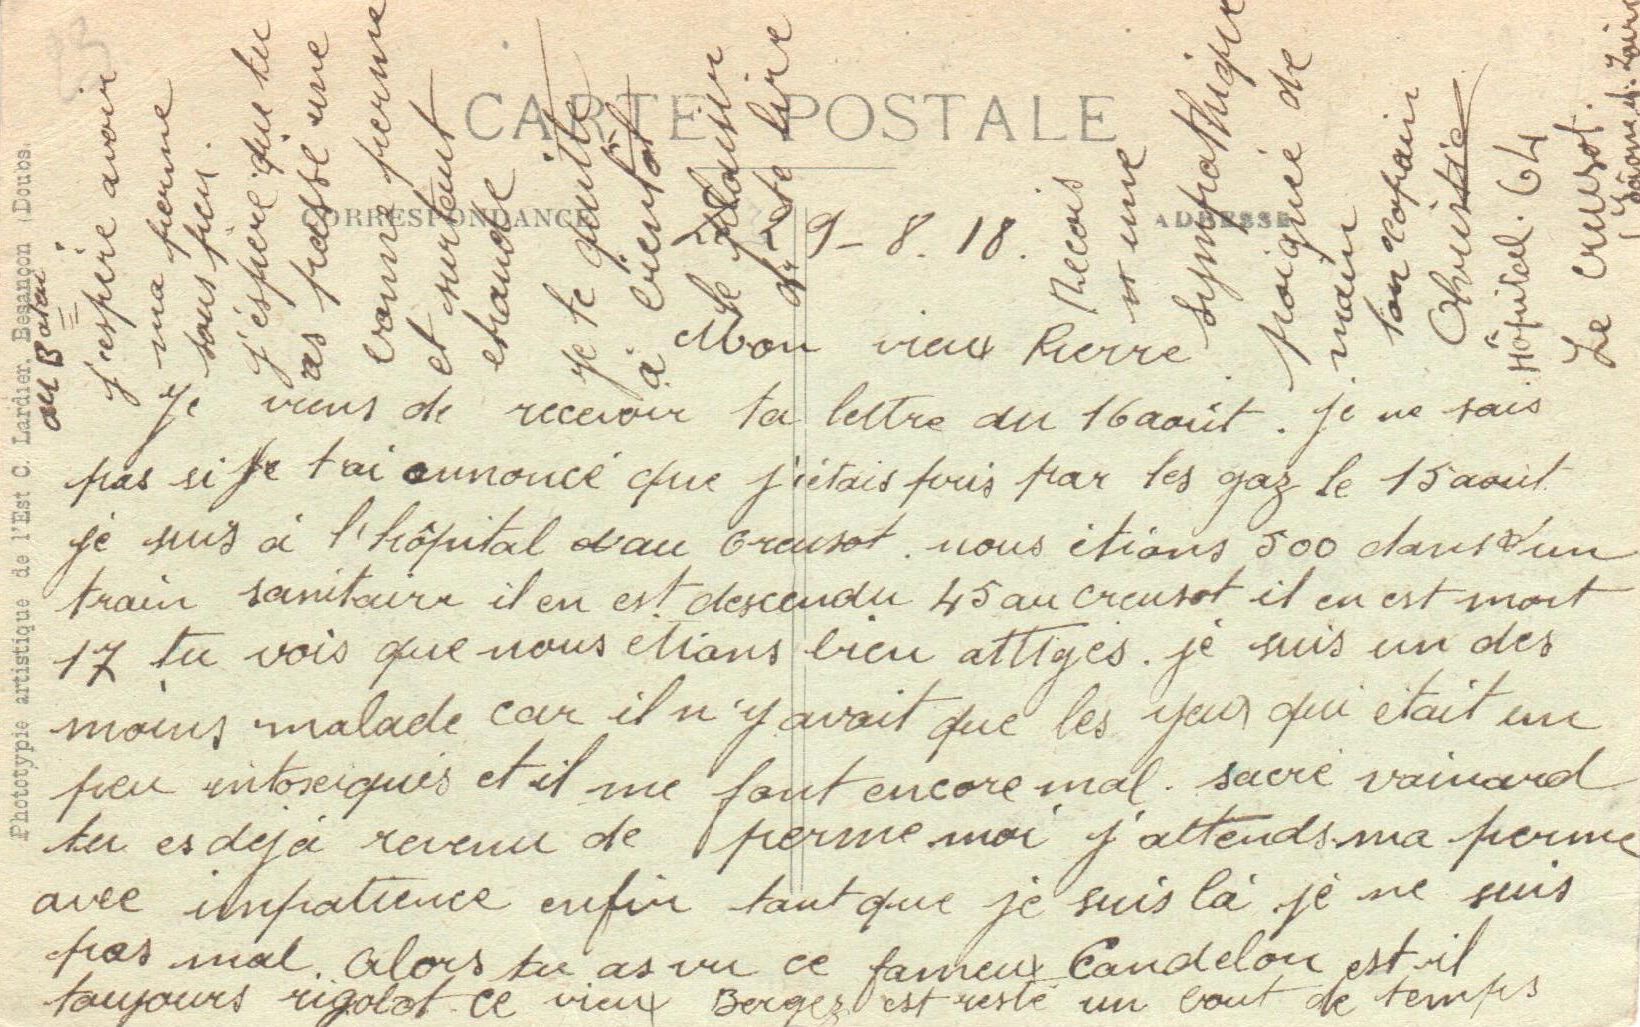 CARTE POSTALE
CORRESPONDANCE
ADRESSE
9-8.18.
Mon vieux Pierre
Je viens de recevoir ta lettre du 16 août. je ne sais
pas si je t'ai annoncé que j'étais pris par les gaz le 15 aout
je suis à l'hôpital au Creusot. nous étions 500 dans un
train sanitaire il en est descendu 45 au Creusot il en est mort
17 tu vois que nous étions bien attigés. je suis un des
moins malade car il n'y avait que les yeux qui était un
peu intoxiqués et il me font encore mal. sacré vainard
tu es déjà revenu de perme moi j'attends ma perme
avec impatience enfin tant que je suis là je ne suis
pas mal. Alors tu as vu ce fameux Candelon est-il
toujours rigolot. ce vieux Bergez est resté un bout de temps
au
j'espère avoir
ma perme
sous peu.
j'éspère que tu
as passé une
bonne perme
et surtout
chaude
je te quitte
à bientôt
le plaisir
de te lire
Recois
une
sympathique
poignée de
main
ton copain
Hôpital. 64
Le Creusot.
Phototypie artistique de l'Est C. Lardier, Besançon (Doubs)